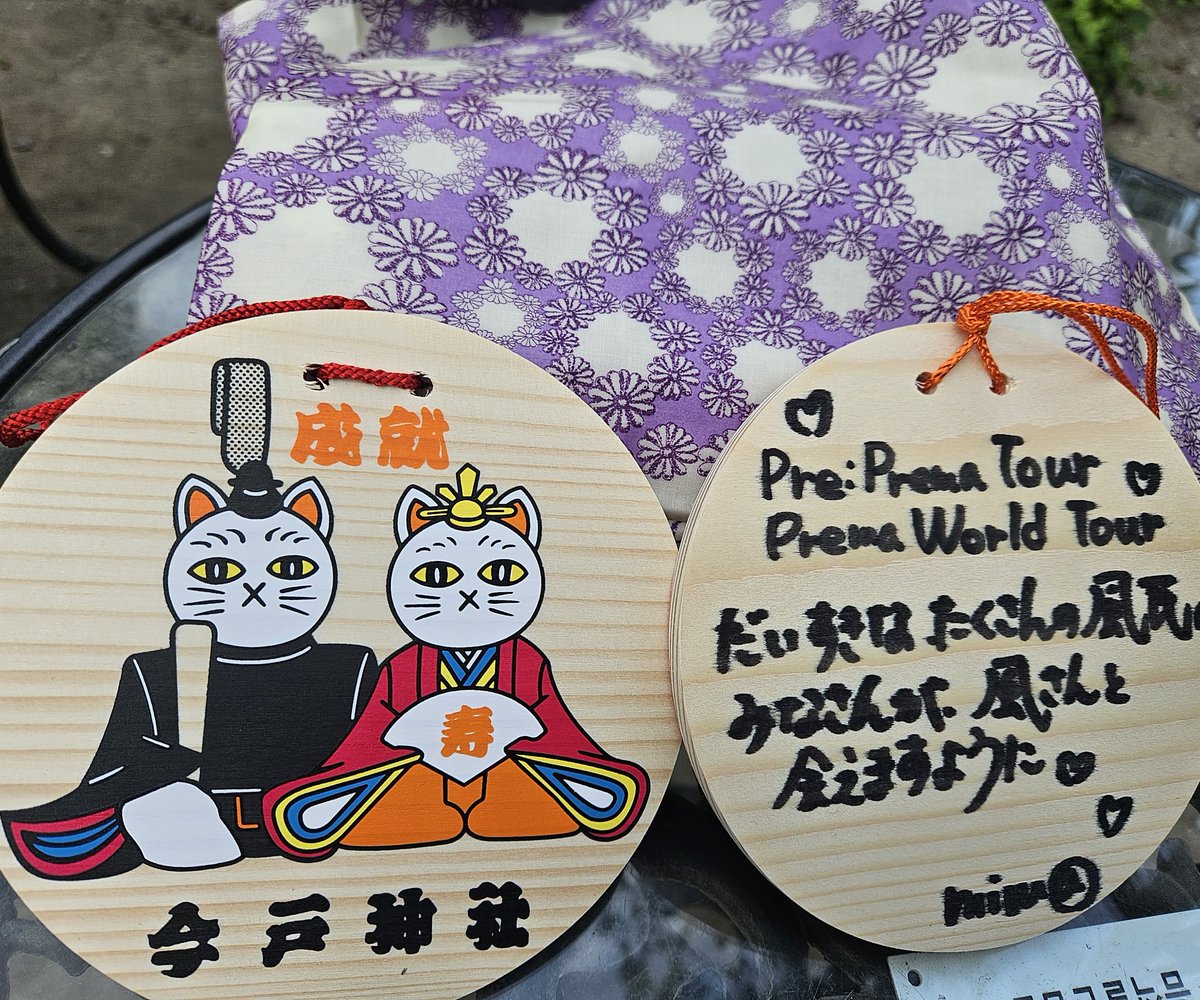 成就
寿
今戸神社
Pre:Prema Tour
Prema World Tour
だいすきな たくさんの風民
みなさんが 風さんと
会えますように